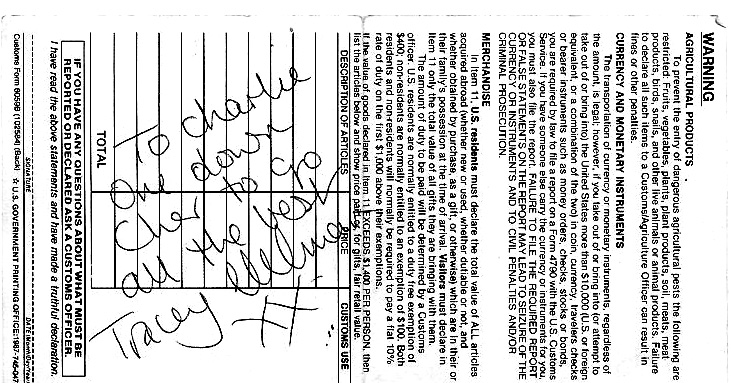 WARNING
AGRICULTURAL PRODUCTS
To prevent the entry of dangerous agricultural pests the following are
restricted: Fruits, vegetables, plants, plant products, soil, meats, meat
products, birds, snails, and other live animals or animal products. Failure
to declare all such items to a Customs/Agriculture Officer can result in
fines or other penalties.
CURRENCY AND MONETARY INSTRUMENTS
The transportation of currency or monetary instruments, regardless of
the amount, is legal; however, if you take out of or bring into (or attempt to
take out of or bring into) the United States more than $10,000 (U.S. or foreign
equivalent, or a combination of the two) in coin, currency, travelers checks
or bearer instruments such as money orders, checks, stocks or bonds,
you are required by law to file a report on a Form 4790 with the U.S. Customs
Service. If you have someone else carry the currency or instruments for you,
you must also file the report. FAILURE TO FILE THE REQUIRED REPORT
OR FALSE STATEMENTS ON THE REPORT MAY LEAD TO SEIZURE OF THE
CURRENCY OR INSTRUMENTS AND TO CIVIL PENALTIES AND/OR
CRIMINAL PROSECUTION.
MERCHANDISE
In Item 11, U.S. residents must declare the total value of ALL articles
acquired abroad (whether new or used, whether dutiable or not, and
whether obtained by purchase, as a gift, or otherwise) which are in their or
their family's possession at the time of arrival. Visitors must declare in
Item 11 only the total value of all gifts they are bringing with them.
The amount of duty to be paid will be determined by a Customs
officer. U.S. residents are normally entitled to a duty free exemption of
$400; non-residents are normally entitled to an exemption of $100. Both
residents and non-residents will normally be required to pay a flat 10%
rate of duty on the first $1,000 above their exemptions.
If the value of goods declared in Item 11 EXCEEDS $1,400 PER PERSON, then
list the articles below and show price paid or, for gifts, fair retail value.
DESCRIPTION OF ARTICLES PRICE CUSTOMS USE
To Charlie
One down
Cher to go
all the best
Tracey Ullman
TOTAL
IF YOU HAVE ANY QUESTIONS ABOUT WHAT MUST BE
REPORTED OR DECLARED ASK A CUSTOMS OFFICER.
I have read the above statements and have made a truthful declaration.
SIGNATURE DATE (Month/Day/Year)
Customs Form 6059B (102584) (Back) U.S. GOVERNMENT PRINTING OFFICE:1987-745-047